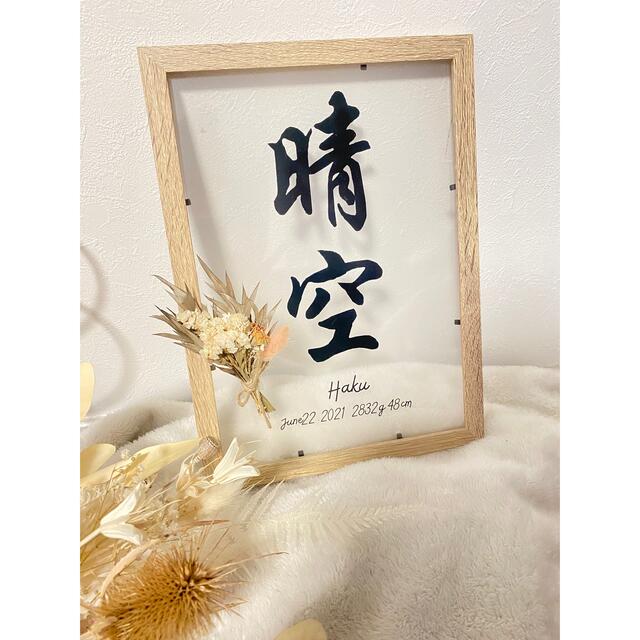 晴空
Haku
June22 2021 2832g 48cm